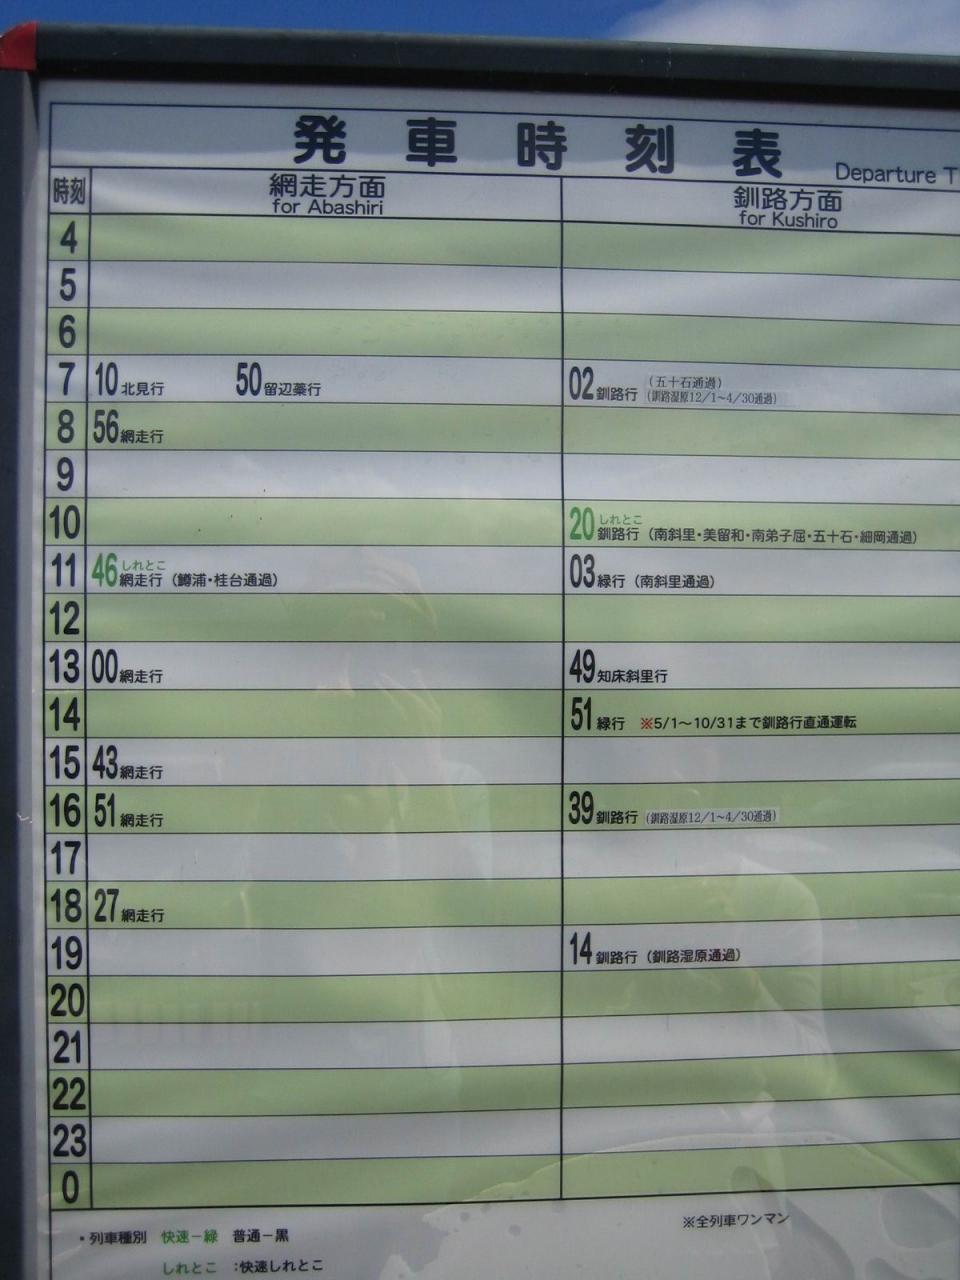 発車時刻表 Departure T
時刻 網走方面 釧路方面
for Abashiri for Kushiro
4
5
6
7 10北見行 50留辺蘂行 02釧路行 (五十石通過)
(釧路湿原12/1~4/30通過)
8 56網走行
9
10 20しれとこ釧路行(南斜里・美留和・南弟子屈・五十石・細岡通過)
11 46しれとこ網走行(鱒浦・桂台通過) 03緑行(南斜里通過)
12
13 00網走行 49知床斜里行
14 51緑行 ※5/1~10/31まで釧路行直通運転
15 43網走行
16 51網走行 39釧路行 (釧路湿原12/1~4/30通過)
17
18 27網走行
19 14釧路行(釧路湿原通過)
20
21
22
23
0
※全列車ワンマン
・列車種別 快速−緑 普通−黒
しれとこ :快速しれとこ